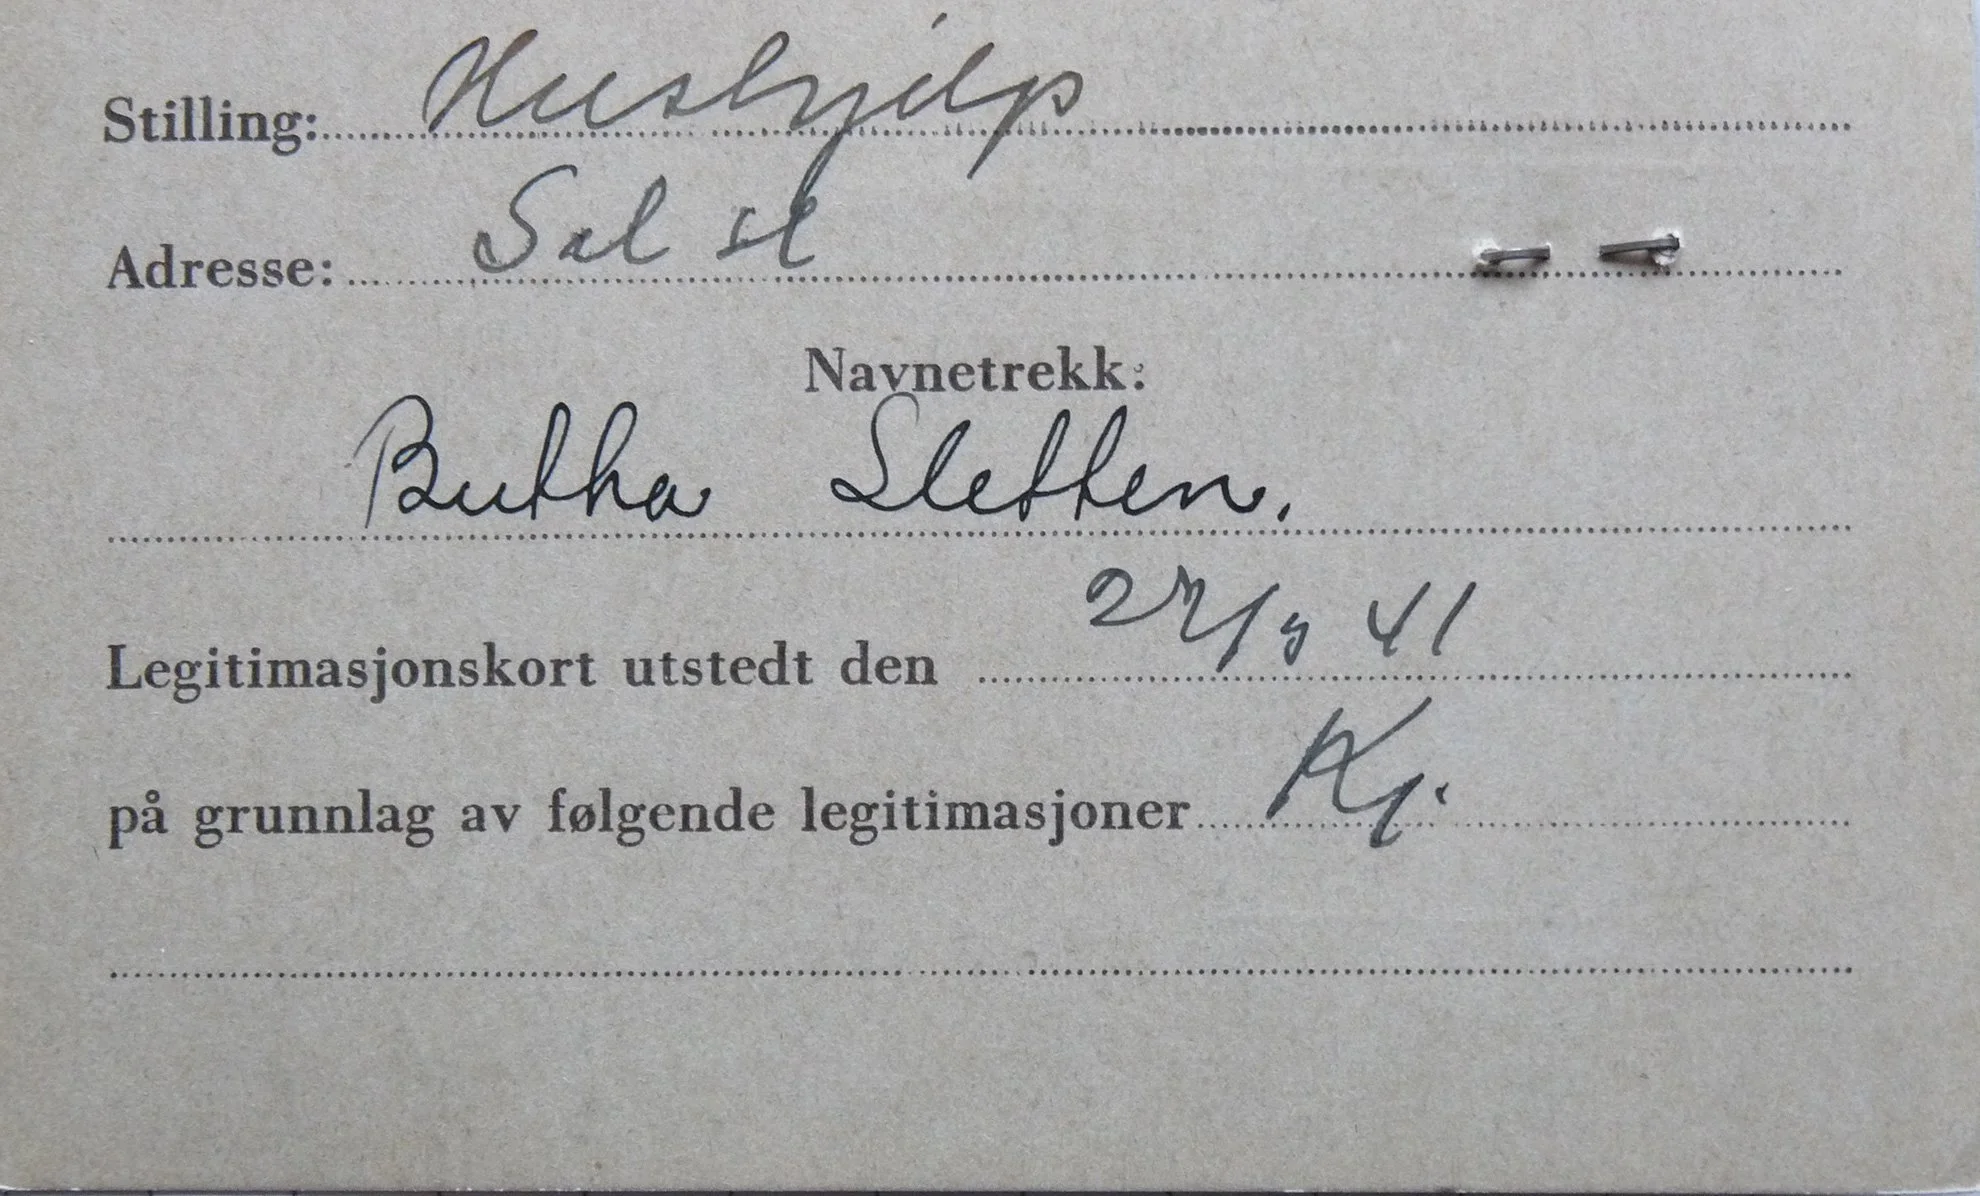 Stilling: Hushjelp
Adresse: Sel st
Navnetrekk:
Bertha Sletten.
Legitimasjonskort utstedt den 27/9 41
på grunnlag av følgende legitimasjoner Kj.